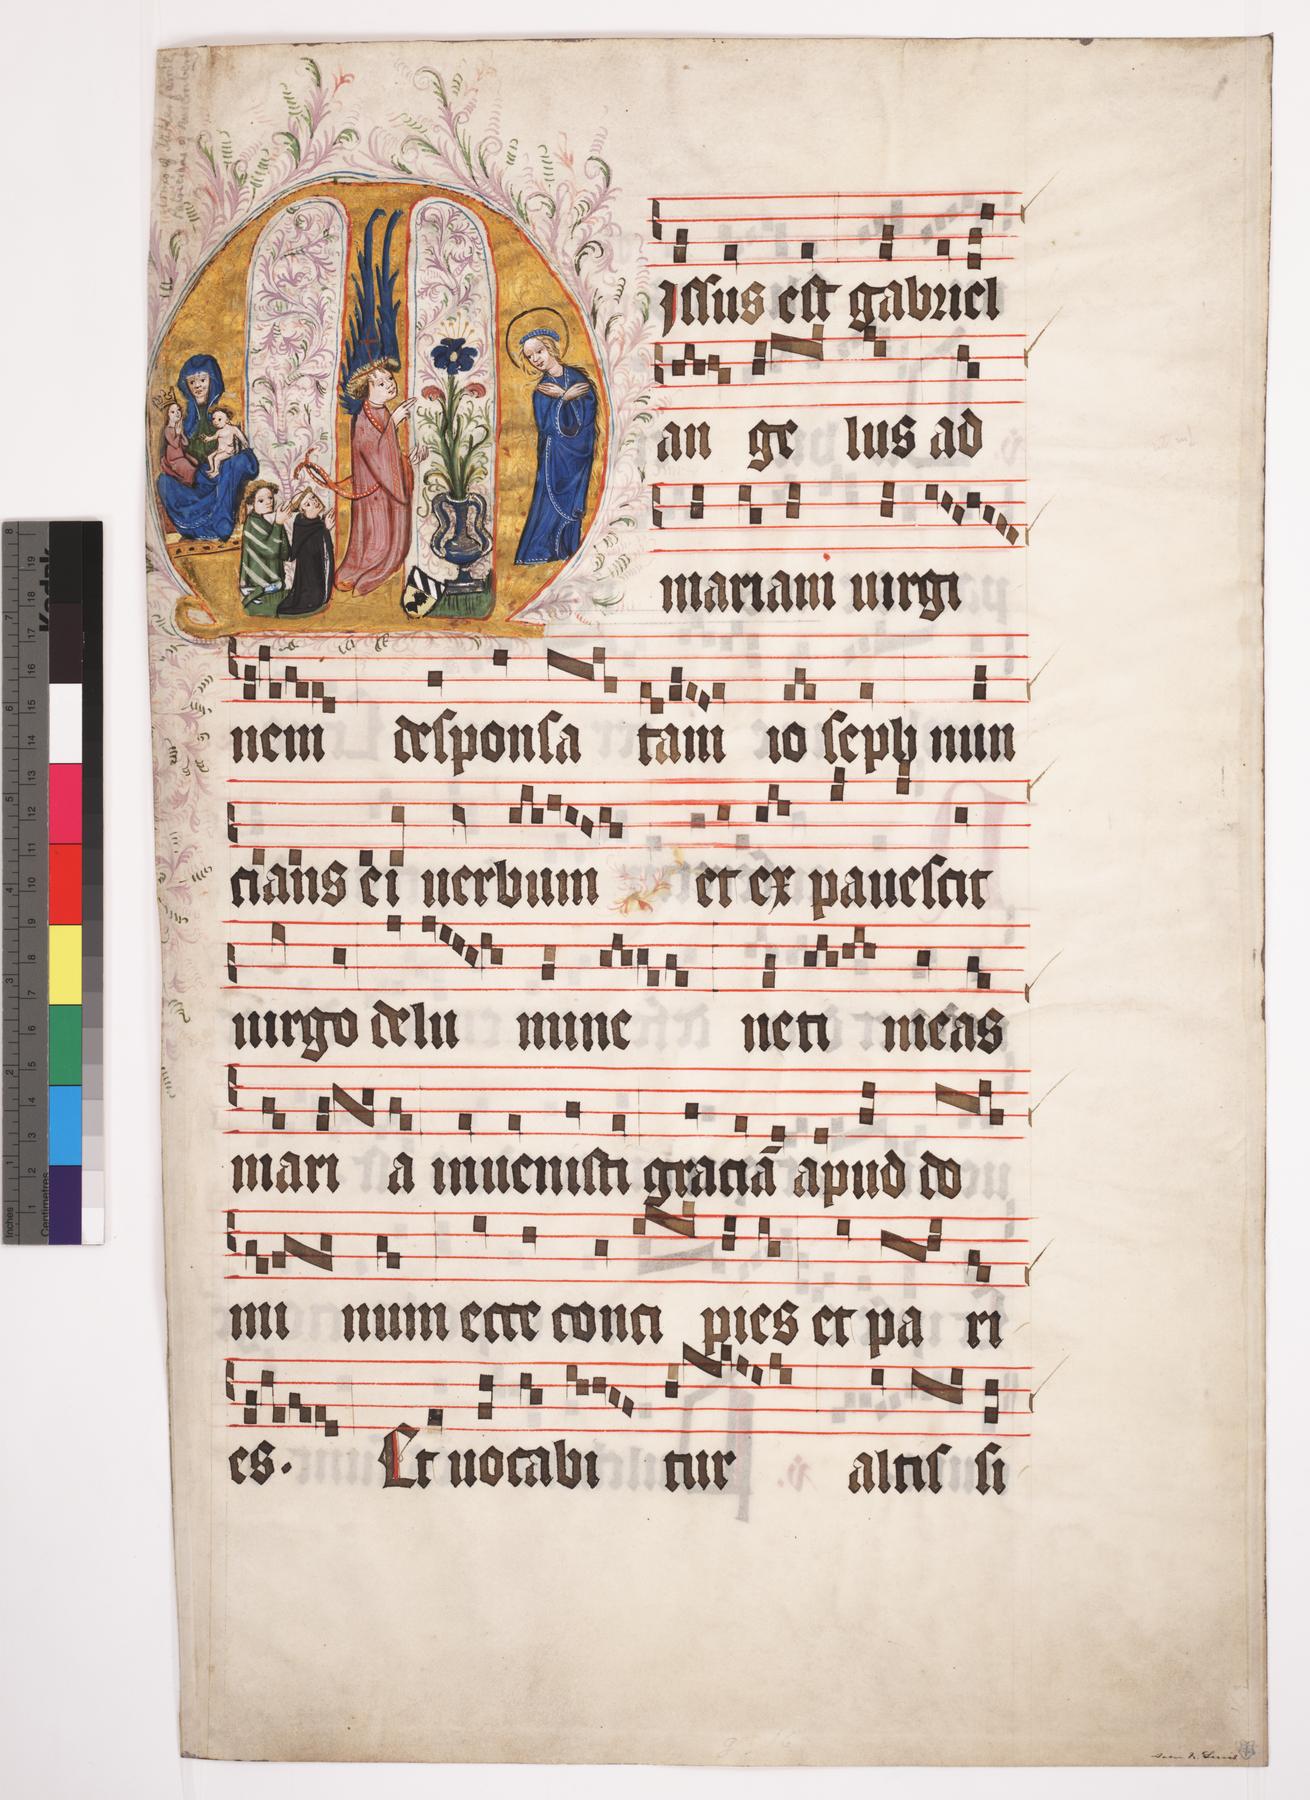 Missus est gabriel
an ge lus ad
mariam uirgi
nem desponsa tam io seph nun
cians ei uerbum et ex pauescit
uirgo de lu mine ne ti meas
mari a inuenisti graciā apud do
mi num ecce conci pies et pa ri
es. Et uocabi tur altis si
Kodak
Inches
Centimetres